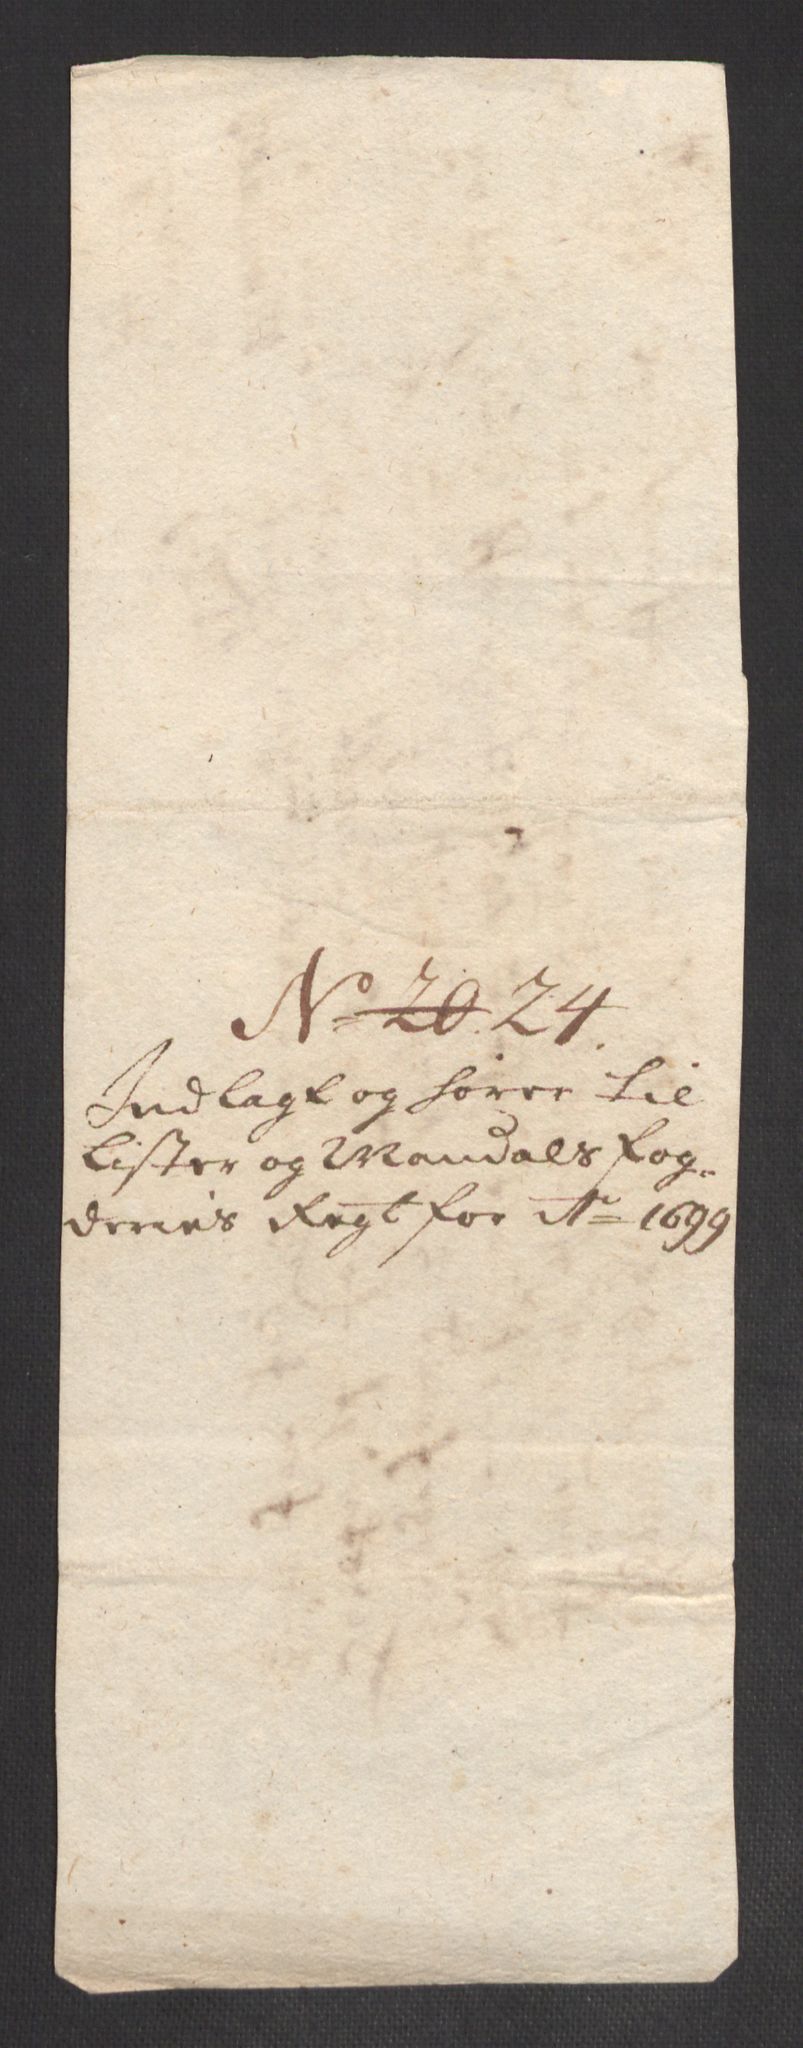 No 20. 24.
Indlagt og hører til
Lister og Mandals fog-
deries Regt for Ao 1699